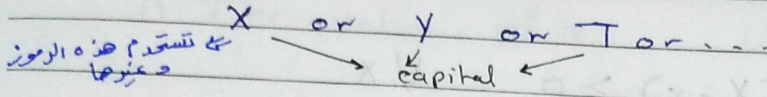 X or y or T or ...
تستخدم هذه الرموز
وغيرها
capital